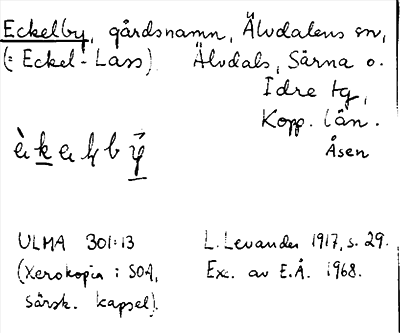 Eckelby, gårdsnamn, Älvdalens sn,
(= Eckel-Lass) Älvdals, Särna o.
Idre tg,
Kopp. län.
Åsen
ULMA 301:13 L. Levander 1917, s. 29.
(Xerokopia i SOA, Exc. av E.Å. 1968.
särsk. kapsel).